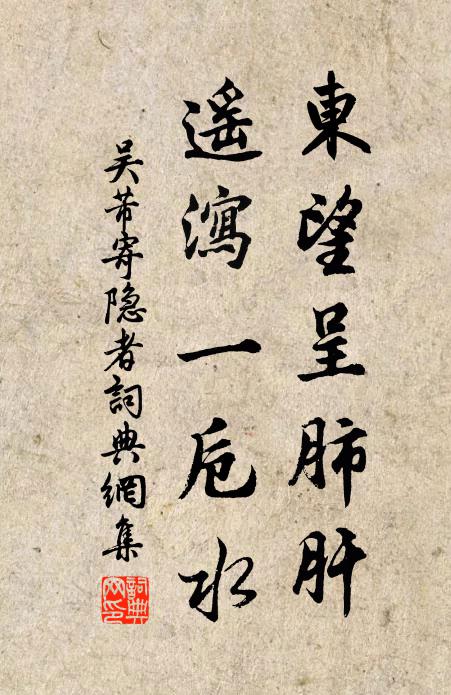 東望呈肺肝
遥瀉一卮水
吴芾寄隐者詞典網集
詞典网印